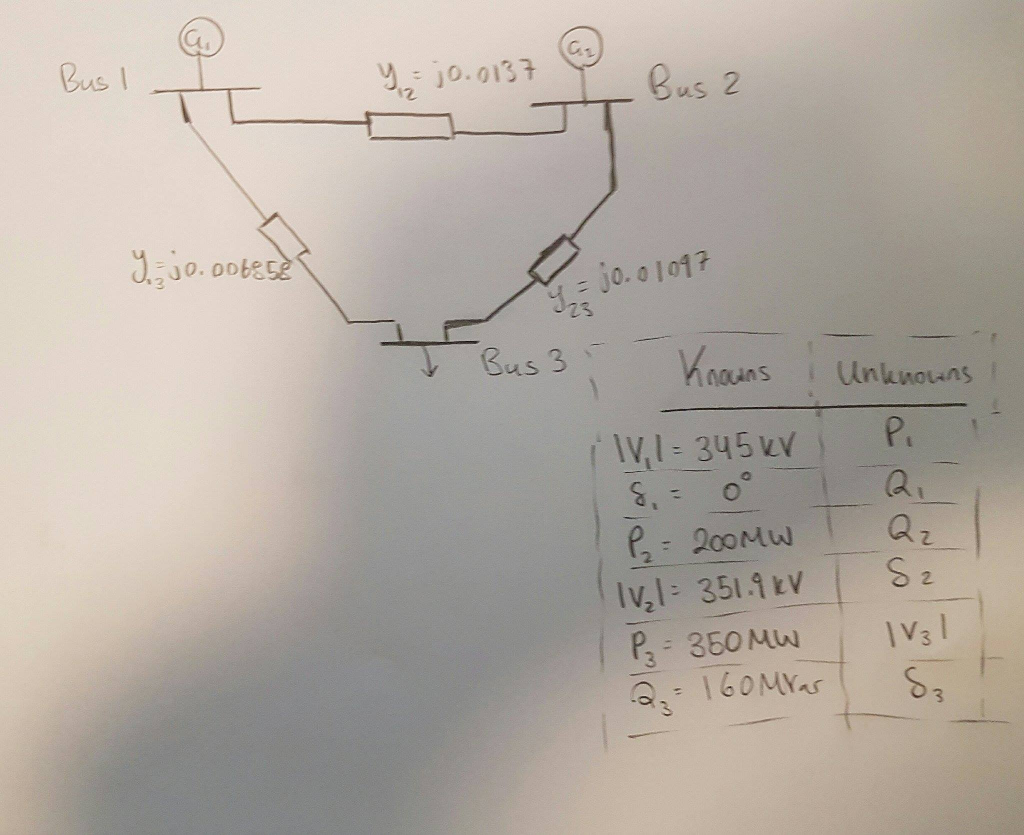 G₁
G₂
Bus 1
y₁₂ = j0.0137
Bus 2
y₁₃ = j0.006858
y₂₃ = j0.01097
Bus 3
Knowns Unknowns
|V₁| = 345 kV P₁
δ₁ = 0° Q₁
P₂ = 200MW Q₂
|V₂| = 351.9 kV δ₂
P₃ = 350 MW |V₃|
Q₃ = 160 MVar δ₃